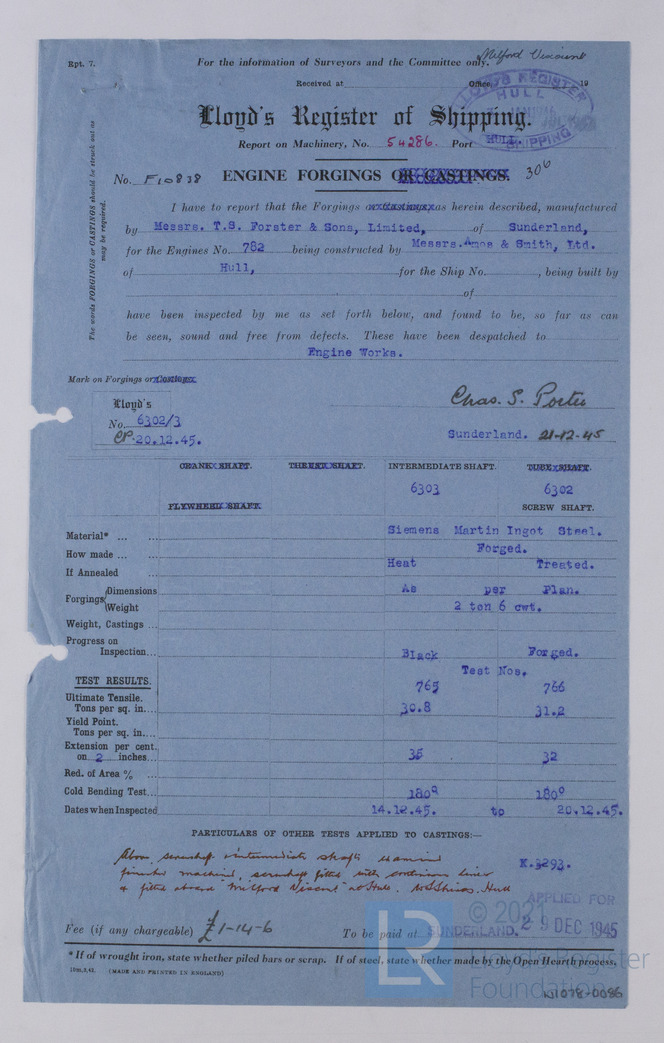 Milford Viscount
Rpt. 7. For the information of Surveyors and the Committee only.
Received at Office, 19
LLOYD'S REGISTER HULL SHIPPING
Lloyd's Register of Shipping.
Report on Machinery, No. 54286. Port HULL.
No. F10838 ENGINE FORGINGS OR CASTINGS. 306
The words FORGINGS or CASTINGS should be struck out as may be required.
I have to report that the Forgings or Castings as herein described, manufactured
by Messrs. T.S. Forster & Sons, Limited, of Sunderland,
for the Engines No. 782 being constructed by Messrs. Amos & Smith, Ltd.
of Hull, for the Ship No. , being built by
of
have been inspected by me as set forth below, and found to be, so far as can
be seen, sound and free from defects. These have been despatched to
Engine Works.
Mark on Forgings or Castings.
Lloyd's
No. 6302/3
CP. 20.12.45.
Chas. S. Porter
Sunderland. 21-12-45
CRANK SHAFT. THRUST SHAFT. INTERMEDIATE SHAFT. TUBE SHAFT.
6303 6302
FLYWHEEL SHAFT. SCREW SHAFT.
Material* ... ... Siemens Martin Ingot Steel.
How made ... ... Forged.
If Annealed ... Heat Treated.
Forgings Dimensions As per Plan.
Weight 2 ton 6 cwt.
Weight, Castings ...
Progress on
Inspection... Black Forged.
TEST RESULTS. Test Nos.
765 766
Ultimate Tensile.
Tons per sq. in.... 30.8 31.2
Yield Point.
Tons per sq. in....
Extension per cent.
on 2 inches... 35 32
Red. of Area % ...
Cold Bending Test... 180° 180°
Dates when Inspected 14.12.45. to 20.12.45.
PARTICULARS OF OTHER TESTS APPLIED TO CASTINGS:—
Above screwshaft & intermediate shafts examined
finished machined, screwshaft fitted with continuous liner
& fitted aboard "Milford Viscount" at Hull. Hull
K.3293.
APPLIED FOR
29 DEC 1945
Fee (if any chargeable) £1-14-6 To be paid at SUNDERLAND.
* If of wrought iron, state whether piled bars or scrap. If of steel, state whether made by the Open Hearth process.
(MADE AND PRINTED IN ENGLAND)
LR
© 2021
Lloyd's Register
Foundation
W1078-0086